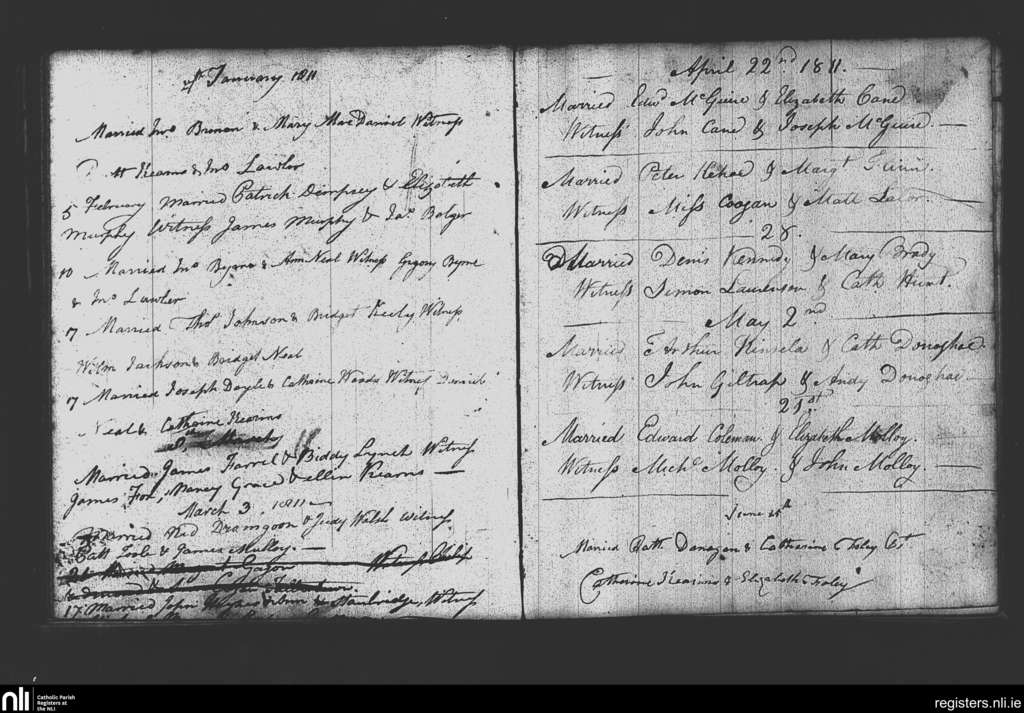 January 1811
Married Jno Brenan & Mary Mac Daniel Witness
Patt Kearns & Jno Lawlor
5 February Married Patrick Dempsey & Elizabeth
Murphy Witness James Murphy & Jas Bolger
10 Married Jno Byrne & Ann Neal Witness Gregory Byrne
& Jno Lawler
17 Married Thos Johnson & Bridget Keely Witness
Willm Jackson & Bridget Neal
17 Married Joseph Doyle & Catharine Woods Witness Daniel
Neal & Catharine Kearns
Married James Farrel & Biddy Lynch Witness
James Fox, Nancy Grace & Ellen Kearns —
March 3, 1811
Married Red Dramgoon & Judy Walsh Witness
Patt Toole & James Mulloy. —
17 Married John & Stanbridge, Witness
— April 22nd 1811. —
Married Edwd McGuire & Elizabeth Cane
Witness John Cane & Joseph McGuire. —
Married Peter Kehoe & Margt
Witness Miss Coogan & Matt Lalor. —
28.
Married Denis Kennedy & Mary Brady
Witness Simon Laurenson & Cath Hunt.
May 2nd
Married Arthur Kinsela & Cath Donoghoe.
Witness John Giltrap & Andy Donoghoe
21st
Married Edward Coleman & Elizabeth Molloy.
Witness Michl Molloy. & John Molloy. —
June 25th
Married Patk Donegan & Catharine Foley
Catherine Kearns & Elizabeth Foley
nli
Catholic Parish
Registers at
the NLI
registers.nli.ie